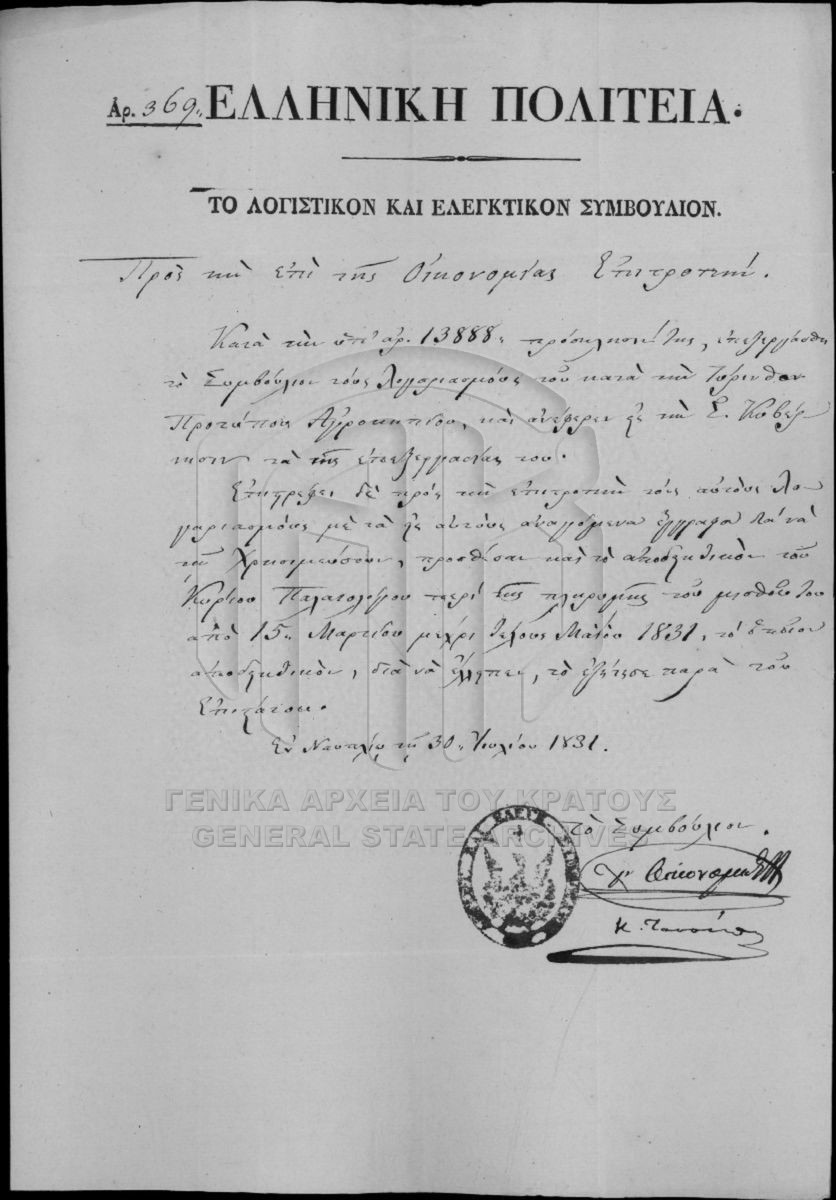 Ἀρ. 369" ΕΛΛΗΝΙΚΗ ΠΟΛΙΤΕΙΑ.
ΤΟ ΛΟΓΙΣΤΙΚΟΝ ΚΑΙ ΕΛΕΓΚΤΙΚΟΝ ΣΥΜΒΟΥΛΙΟΝ.
Πρὸς τὴν ἐπὶ τῆς Οἰκονομίας Ἐπιτροπήν.
Κατὰ τὴν ὑπ' ἀρ. 13888" πρόσκλησίν της, ἐπεξεργάσθη
τὸ Συμβούλιον τοὺς λογαριασμοὺς τοῦ κατὰ τὴν Κόρινθον
Προτύπου Ἀγροκηπίου, καὶ ἀνέφερεν εἰς τὴν Σ. Κυβέρ
νησιν τὰ τῆς ἐπεξεργασίας του.
Ἐπιστρέφει δὲ πρὸς τὴν ἐπιτροπὴν τοὺς αὐτοὺς λο
γαριασμοὺς μὲ τὰ εἰς αὐτοὺς ἀναγόμενα ἔγγραφα διὰ νὰ
τῇ χρησιμεύσουν, προσθέσαν καὶ τὸ ἀποδεικτικὸν τοῦ
Κυρίου Παλαιολόγου περὶ τῆς πληρωμῆς τοῦ μισθοῦ του
ἀπὸ 15" Μαρτίου μέχρι τέλους Μαΐου 1831, τὸ ὁποῖον
ἀποδεικτικὸν, διὰ νὰ ἔλειπεν, τὸ ἐζήτησε παρὰ τοῦ
Ἐπιστάτου.
Ἐν Ναυπλίῳ τῇ 30" Ἰουλίου 1831.
ΓΕΝΙΚΑ ΑΡΧΕΙΑ ΤΟΥ ΚΡΑΤΟΥΣ
GENERAL STATE ARCHIVES
τὸ Συμβούλιον.
ΚΑΙ ΕΛΕΓΚ. ΣΥΜΒΟΥΛΙΟΝ
Οἰκονομίδης
Κ.